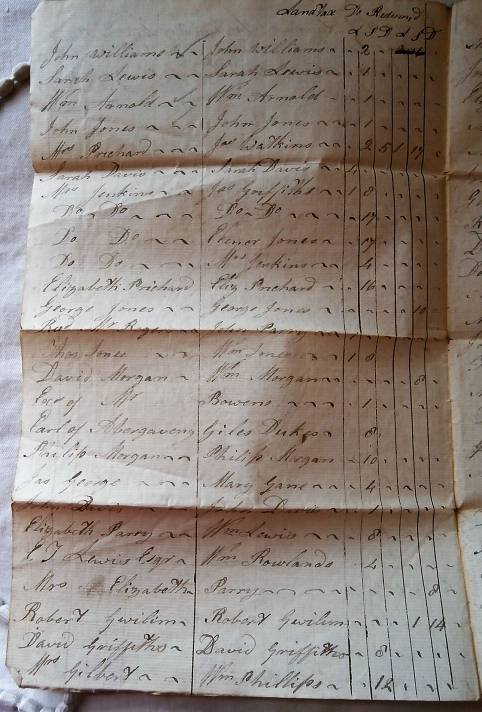 Landtax Do Redeem'd
£ S D £ S D
John Williams John Williams 2
Sarah Lewis Sarah Lewis 1
Wm Arnold Wm Arnold 1
John Jones John Jones 1
Mrs Prichard Jas Watkins 2 5 1 17
Sarah Davis Sarah Davis 4
Mrs Jenkins Jas Griffiths 1 8
Do Do Do Do 17
Do Do Elenor Jones 17
Do Do Mrs Jenkins 4
Elizabeth Prichard Eliz Prichard 16
George Jones George Jones 10
Revd Mr Rogers John Parry
Thos Jones Wm Jones 1 8
David Morgan Wm Morgan 8
Exe of Mr Bowens 1
Earl of Abergaveny Giles Dukes 8
Philip Morgan Philip Morgan 10
Jas George Mary Gane 4
John Davis John Davis 1
Elizabeth Parry Wm Lewis 8
E J Lewis Esqr Wm Rowlands 4
Mrs Elizabeth Parry 8
Robert Gwilim Robert Gwilim 1 14
David Griffiths David Griffiths 8
Mrs Gilbert Wm Phillips 12